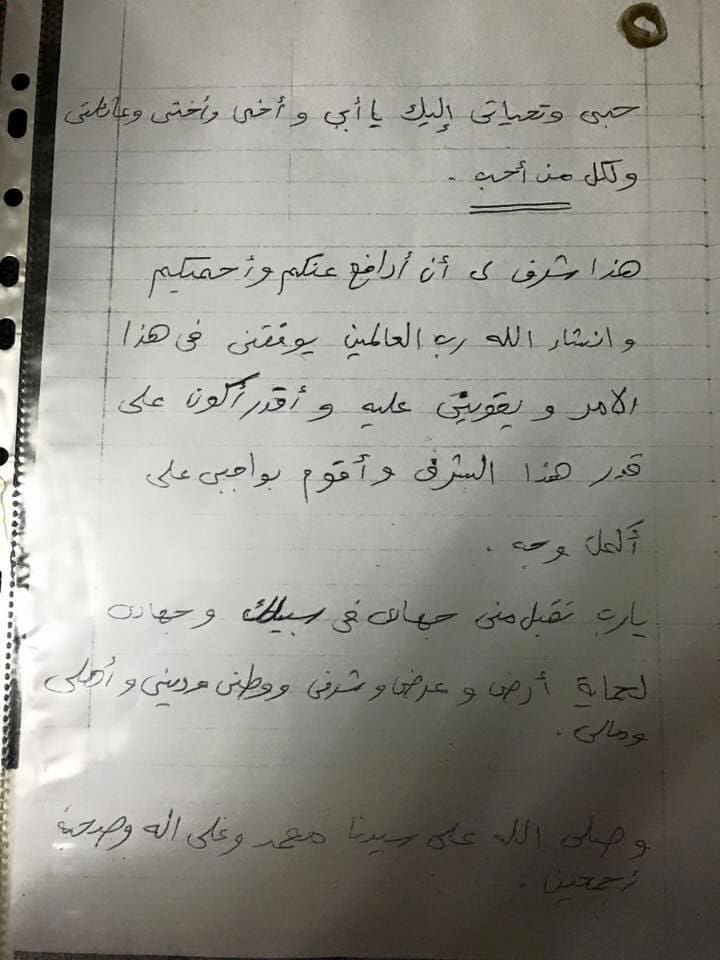 حبى وتحياتى إليك يا أبي و أخى وأختى وعائلتى
ولكل من أحب .
هذا شرف لى أن أدافع عنكم وأحميكم
و انشاء الله رب العالمين يوفقنى فى هذا
الامر و يقوينى عليه و أقدر أكون على
قدر هذا الشرف و أقوم بواجبى على
أكمل وجه .
يارب تقبل منى جهادى فى سبيلك و جهادى
لحماية أرضى و عرضى وشرفى ووطنى ودينى و أهلى
ومالى .
و صلى الله على سيدنا محمد وعلى اله وصحبه
أجمعين .